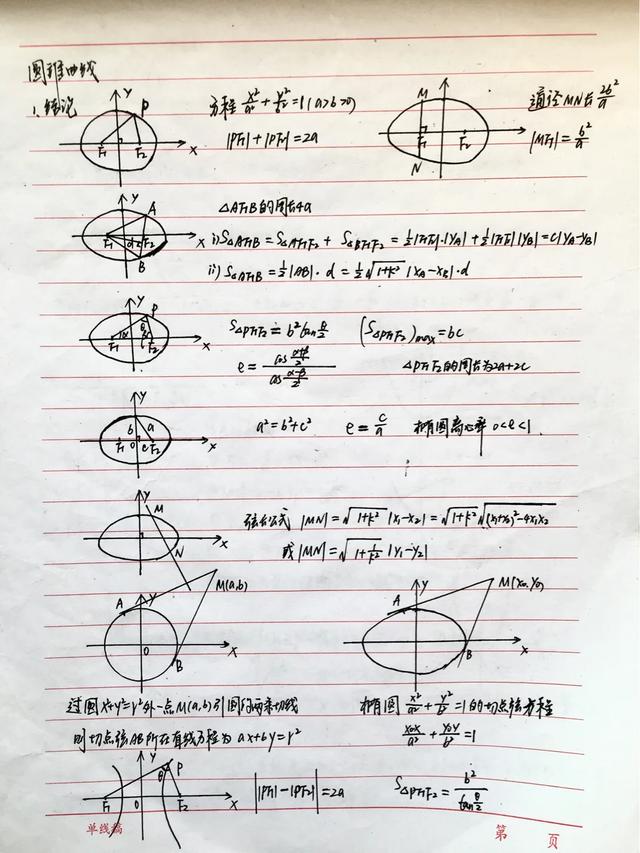 圆锥曲线
1、结论
方程 x²/a² + y²/b² = 1 (a>b>0)
|PF₁|+|PF₂|=2a
通径MN长 2b²/a
|MF₁| = b²/a
△AF₁B的周长4a
i) S△AF₁B = S△AF₁F₂ + S△BF₁F₂ = ½|F₁F₂|·|yA| + ½|F₁F₂||yB| = c|yA-yB|
ii) S△AF₁B = ½|AB|·d = ½√(1+k²) |xA-xB|·d
S△PF₁F₂ = b² tan θ/2 (S△PF₁F₂)max = bc
e = cos (α+β)/2 / cos (α-β)/2
△PF₁F₂的周长为2a+2c
a²=b²+c² e = c/a 椭圆离心率 0<e<1
弦长公式 |MN| = √(1+k²) |x₁-x₂| = √(1+k²) √((x₁+x₂)²-4x₁x₂)
或 |MN| = √(1+1/k²) |y₁-y₂|
M(a,b)
M(x₀,y₀)
过圆x²+y²=r²外一点M(a,b)引圆的两条切线
则切点弦AB所在直线方程为 ax+by=r²
椭圆 x²/a² + y²/b² = 1 的切点弦方程
x₀x/a² + y₀y/b² = 1
||PF₁|-|PF₂|| = 2a
S△PF₁F₂ = b² / tan θ/2
单线稿
第 页